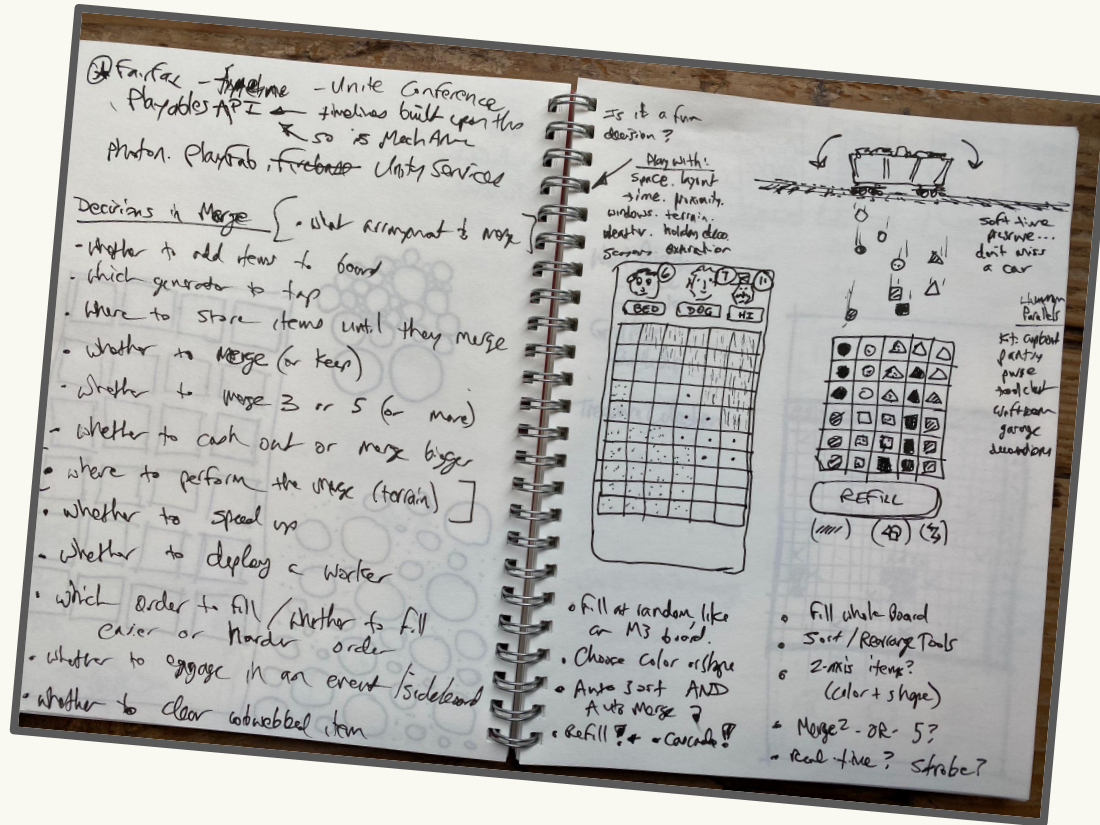 Fairfax - - Unite Conference
Playables API ← timelines built upon this
so is MechAnim
photon. Playfab, Firebase Unity Services
Decisions in Merge { • what arrangement to merge }
- whether to add items to board
• which generator to tap
• where to store items until they merge
• whether to merge (or keep)
• whether to merge 3 or 5 (or more)
- whether to cash out or merge bigger
• where to perform the merge (terrain) ]
• whether to speed up
• whether to deploy a worker
• which order to fill / whether to fill
easier or harder order
• whether to engage in an event/sideboard
• whether to clear cobwebbed item
Is it a fun
decision?
Play with:
space. layout
time. proximity.
windows. terrain.
weather. holiday deco
seasons. expiration
6 7 11
BED DOG HI
• Fill at random, like
an M3 board.
• Choose color or shape
• Auto sort AND
Auto Merge?
• Refill! ← • Cascade!!
soft time
pressure...
don't miss
a car
Human
Parallels
Kit. cupboard
pantry
purse
tool chest
garage
decorations
REFILL
• Fill whole board
• Sort/Rearrange Tools
• 2-axis items?
(color + shape)
• Merge 2 - OR - 5?
• Real-time? Strobe?